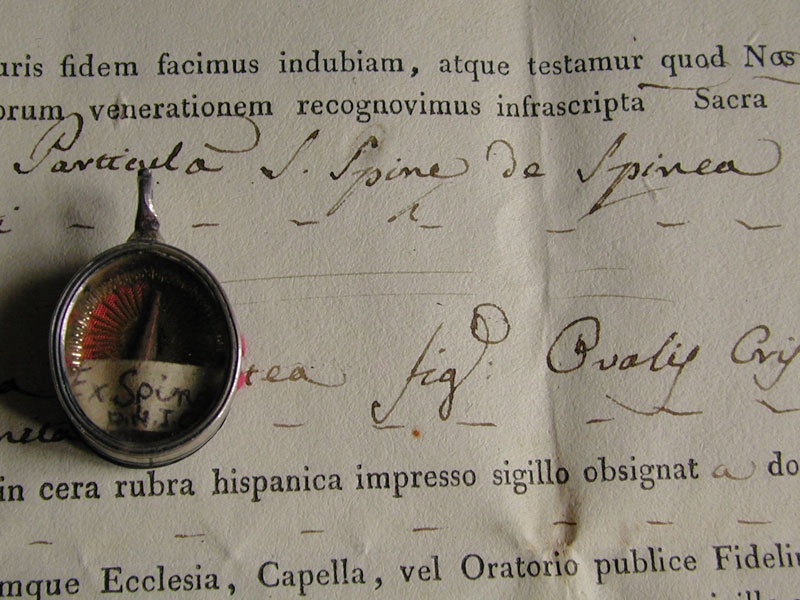 uris fidem facimus indubiam, atque testamur quod Nos
orum venerationem recognovimus infrascripta Sacra
Particula S. Spine de Spinea
Ex Spin
D.N.J.C
tea fig: Ovalis Crys
in cera rubra hispanica impresso sigillo obsignata do
mque Ecclesia, Capella, vel Oratorio publice Fideliu